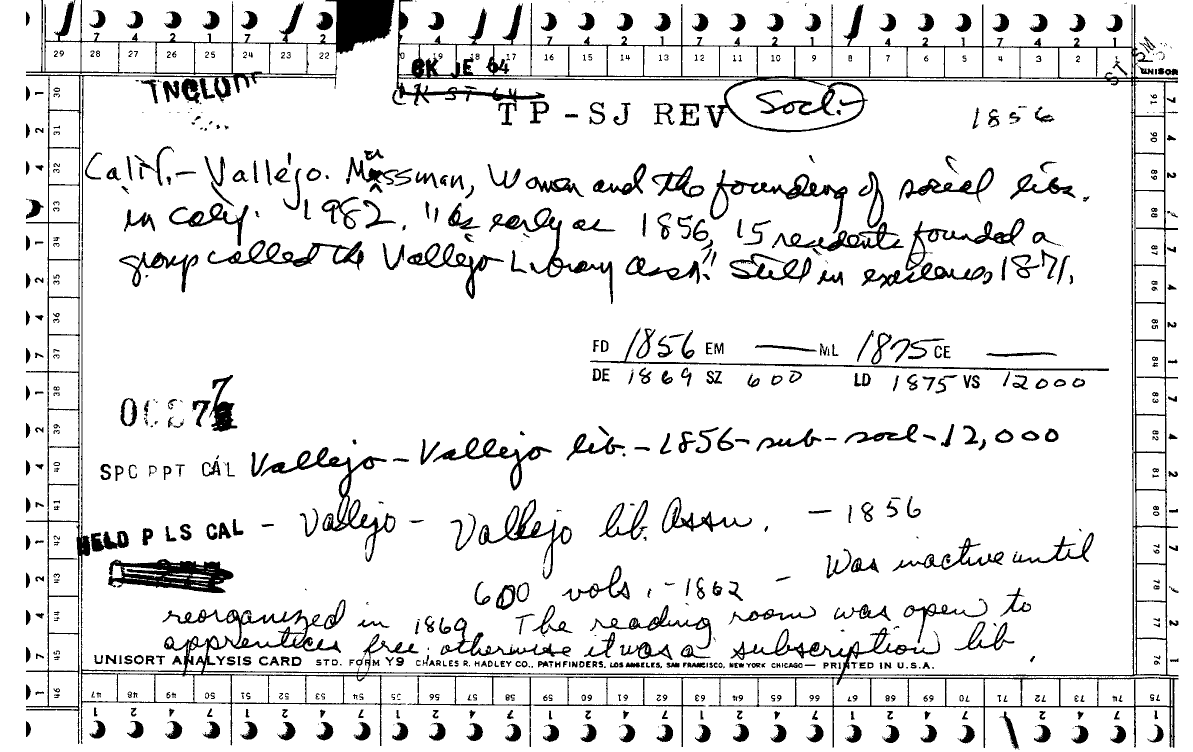 7 4 2 1 7 4 2 1 7 4 2 1 7 4 2 1 7 4 2 1
29 28 27 26 25 24 23 22 19 18 17 16 15 14 13 12 11 10 9 8 7 6 5 4 3 2 1
UNISOR
BK JE 64
CK ST 64
INCLUDE
TP-SJ REV Socl.- 1856
Calif.- Vallejo. Mussman, Women and the founding of social libs.
in calif. 1982. "As early as 1856, 15 residents founded a
group called the Vallejo Library Assn." Still in existence 1871.
FD 1856 EM — ML 1875 CE —
DE 1869 SZ 600 LD 1875 VS 12000
7
SPC PPT CAL Vallejo - Vallejo lib. - 1856 - sub - socl - 12,000
HELD P LS CAL - Vallejo - Vallejo lib. Assn. - 1856
600 vols. - 1862 - Was inactive until
reorganized in 1869 The reading room was open to
apprentices free; otherwise it was a subscription lib.
UNISORT ANALYSIS CARD STD. FORM Y9 CHARLES R. HADLEY CO., PATHFINDERS, LOS ANGELES, SAN FRANCISCO, NEW YORK CHICAGO — PRINTED IN U.S.A.
46 47 48 49 50 51 52 53 54 55 56 57 58 59 60 61 62 63 64 65 66 67 68 69 70 71 72 73 74 75